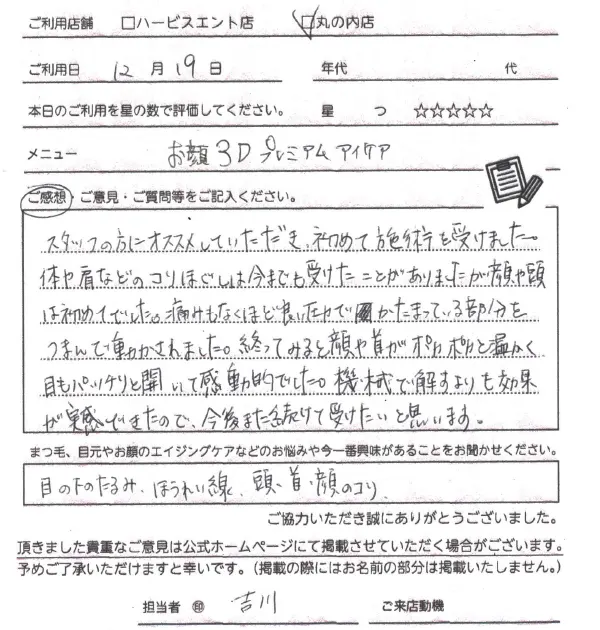 ご利用店舗 □ハービスエント店 ☑丸の内店
ご利用日 12 月 19 日 年代 代
本日のご利用を星の数で評価してください。 星 つ ☆☆☆☆☆
メニュー お顔3Dプレミアムアイケア
ご感想・ご意見・ご質問等をご記入ください。
スタッフの方にオススメしていただき、初めて施術を受けました。
体や肩などのコリほぐしは今までも受けたことがありましたが顔や頭
は初めてでした。痛みもなくほど良い圧力でかたまっている部分を
つまんで動かされました。終ってみると顔や首がポカポカと温かく
目もパッチリと開いて感動的でした。機械で解すよりも効果
が実感できたので、今後また続けて受けたいと思います。
まつ毛、目元やお顔のエイジングケアなどのお悩みや今一番興味があることをお聞かせください。
目の下のたるみ、ほうれい線、頭、首、顔のコリ
ご協力いただき誠にありがとうございました。
頂きました貴重なご意見は公式ホームページにて掲載させていただく場合がございます。
予めご了承いただけますと幸いです。（掲載の際にはお名前の部分は掲載いたしません。）
担当者 ㊞ 吉川 ご来店動機